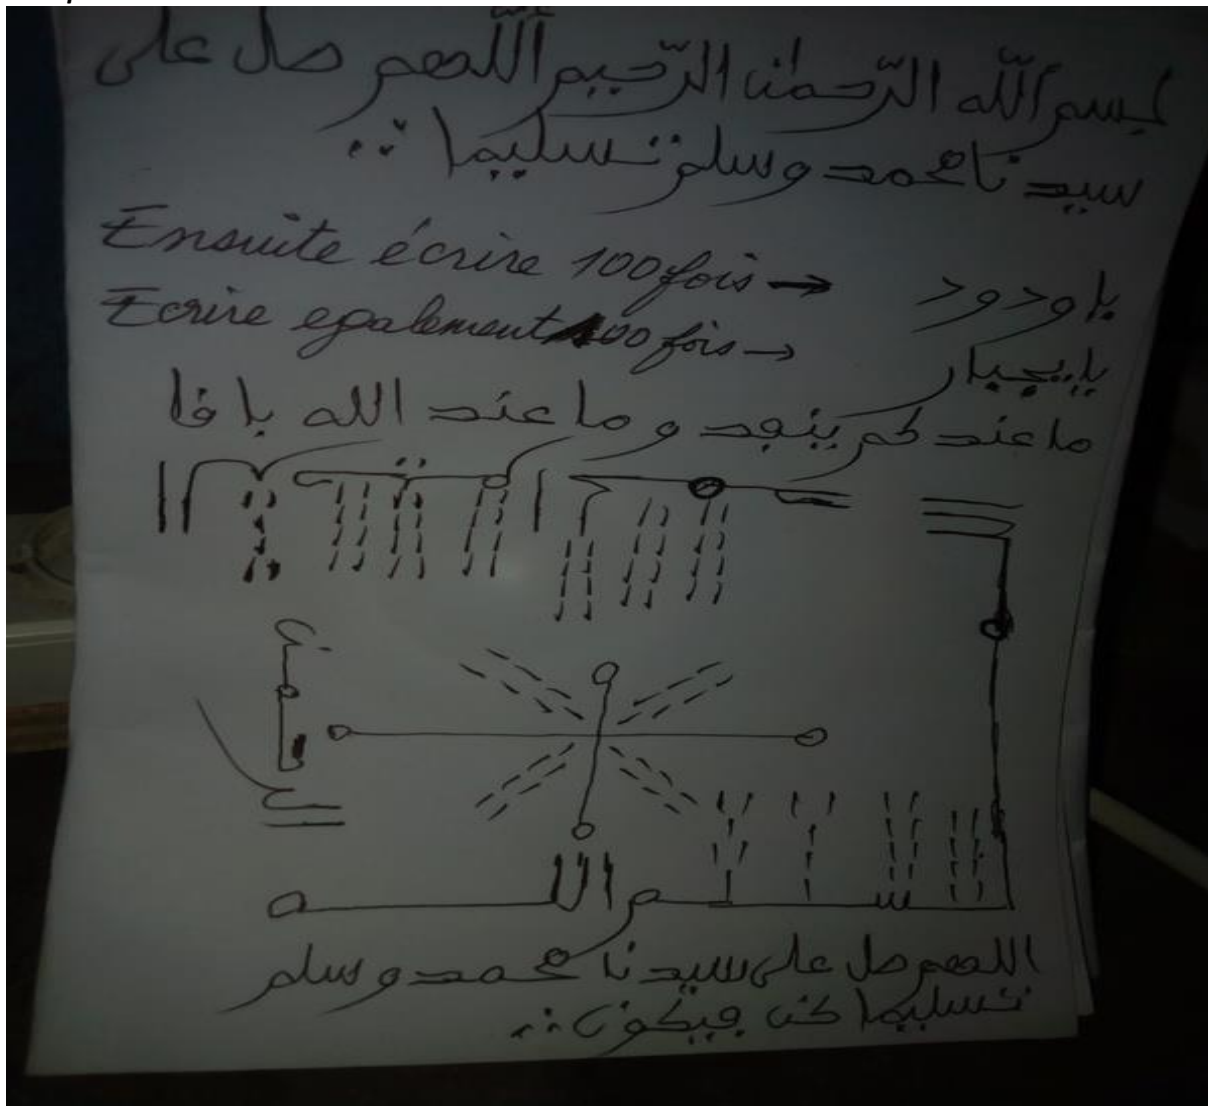 بسم الله الرّحمٰن الرّحيم اللّهم صل على
سيدنا محمد وسلم تسليما
Ensuite écrire 100 fois → يا ودود
Ecrire egalement 100 fois →
ما عندكم ينفد وما عند الله باقا
اللهم صل على سيدنا محمد وسلم
تسليما كن فيكون